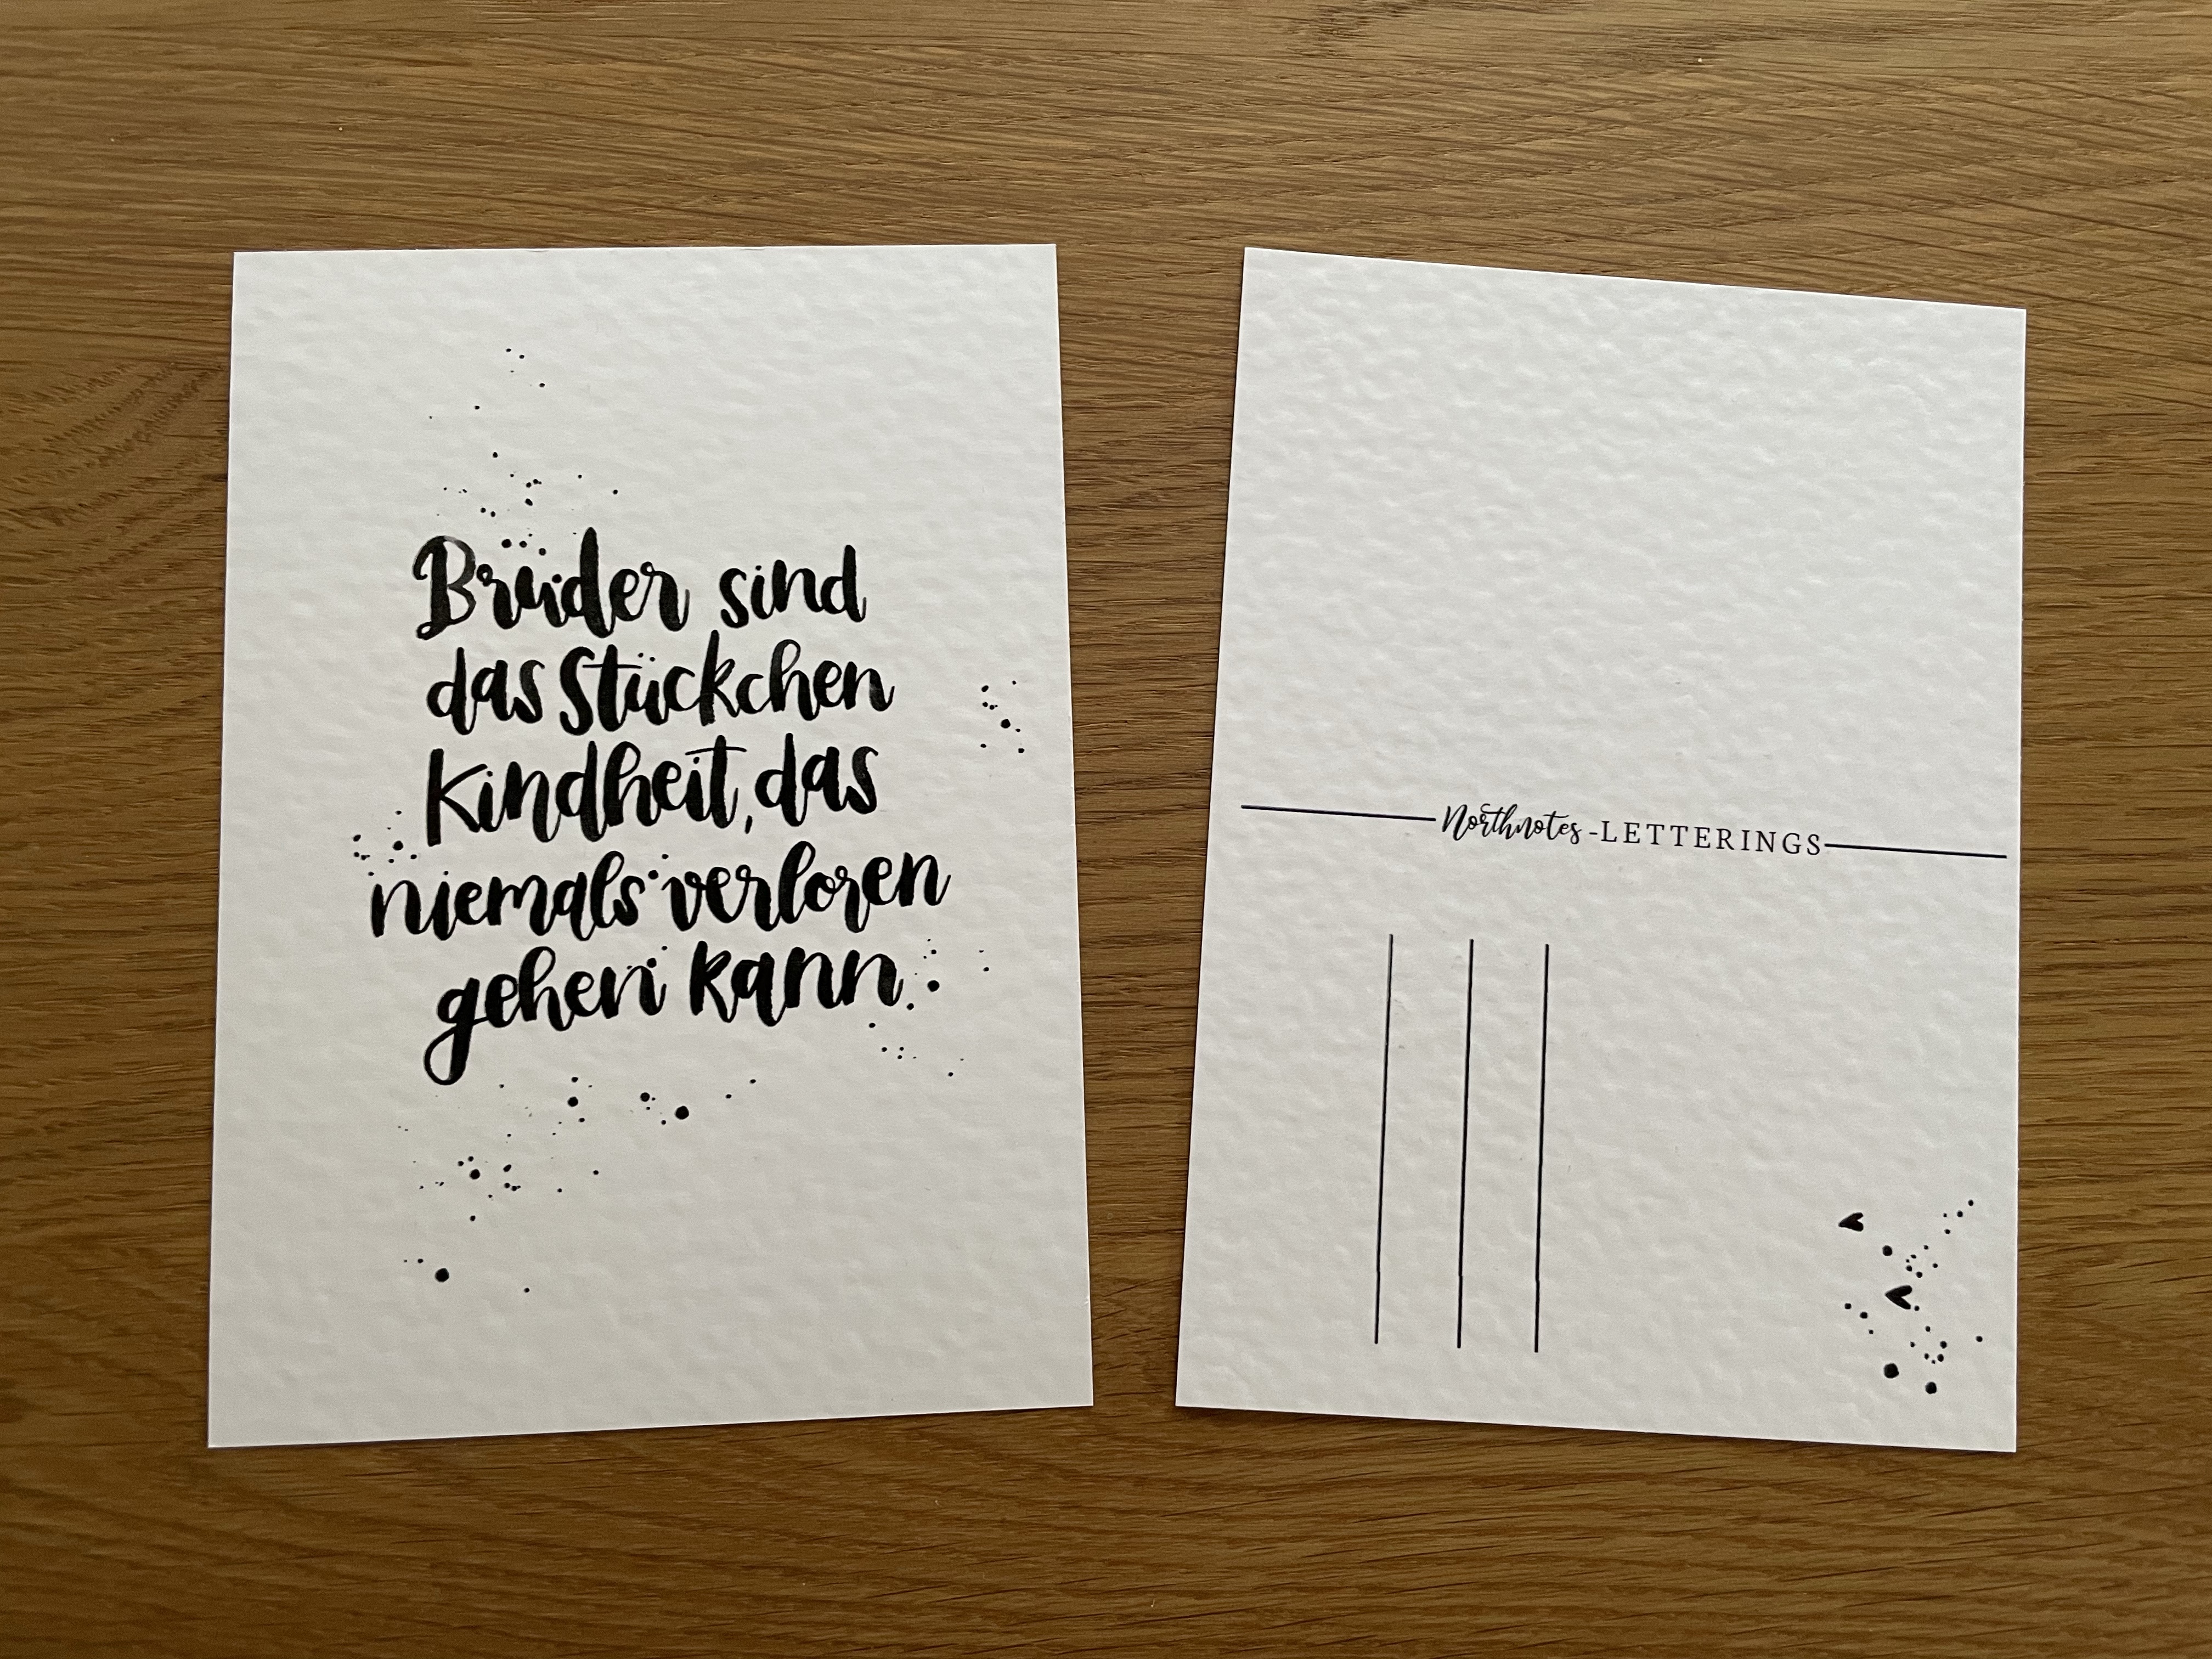 Brüder sind
das Stückchen
Kindheit, das
niemals verloren
gehen kann.
Northnotes-LETTERINGS